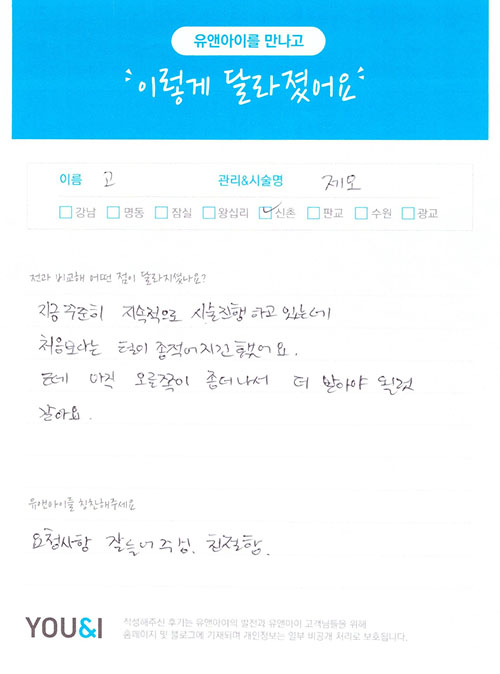 유앤아이를 만나고
이렇게 달라졌어요
이름 고 관리&시술명 제모
강남 명동 잠실 왕십리 신촌 판교 수원 광교
전과 비교해 어떤 점이 달라지셨나요?
지금 꾸준히 지속적으로 시술진행 하고 있는데
처음보다는 털이 좀적어지긴 했어요.
근데 아직 오른쪽이 좀더나서 더 받아야 될것
같아요.
유앤아이를 칭찬해주세요
요청사항 잘들어주심. 친절함.
YOU&I
작성해주신 후기는 유앤아이의 발전과 유앤아이 고객님들을 위해
홈페이지 및 블로그에 기재되며 개인정보는 일부 비공개 처리로 보호됩니다.